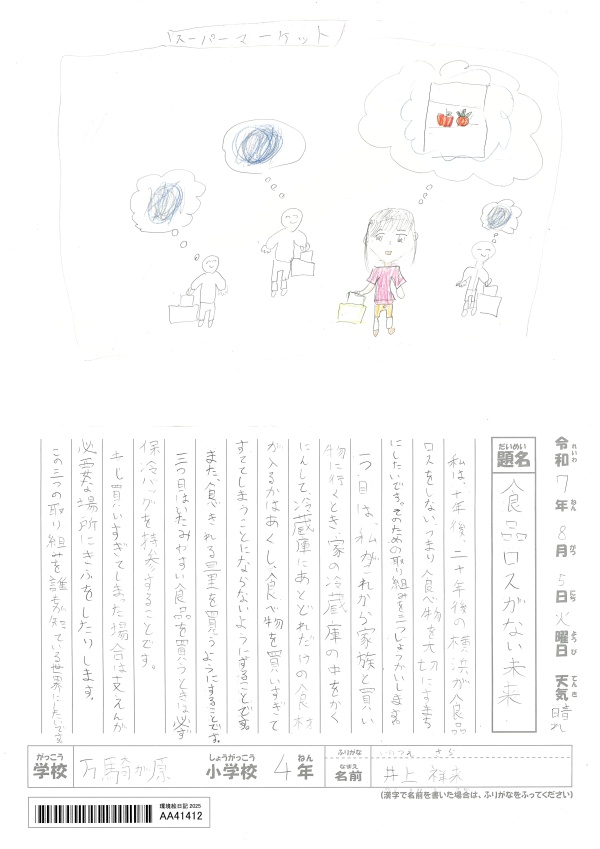 スーパーマーケット
令和7年8月5日火曜日 天気 晴れ
れいわ ねん がつ にち ようび てんき
だいめい
題名
食品ロスがない未来
私は、十年後、二十年後の横浜が食品
ロスをしない、つまり食べ物を大切にするまち
にしたいです。そのための取り組みを三つしょうかいします。
一つ目は、私がこれから家族と買い
物に行くとき、家の冷蔵庫の中をかく
にんして、冷蔵庫にあとどれだけの食材
が入るかはあくし、食べ物を買いすぎて
すててしまうことにならないようにすることです。
また、食べきれる量を買うようにすることです。
三つ目はいたみやすい食品を買うときは必ず
保冷バッグを持参することです。
もし買いすぎてしまった場合は支えんが
必要な場所にきふをしたりします。
この三つの取り組みを誰もが知っている世界にしたいです。
がっこう
学校
万騎が原
しょうがっこう
小学校
4年
ねん
ふりがな
いのうえ
なまえ
名前
井上
(漢字で名前を書いた場合は、ふりがなをふってください)
環境絵日記 2025
AA41412